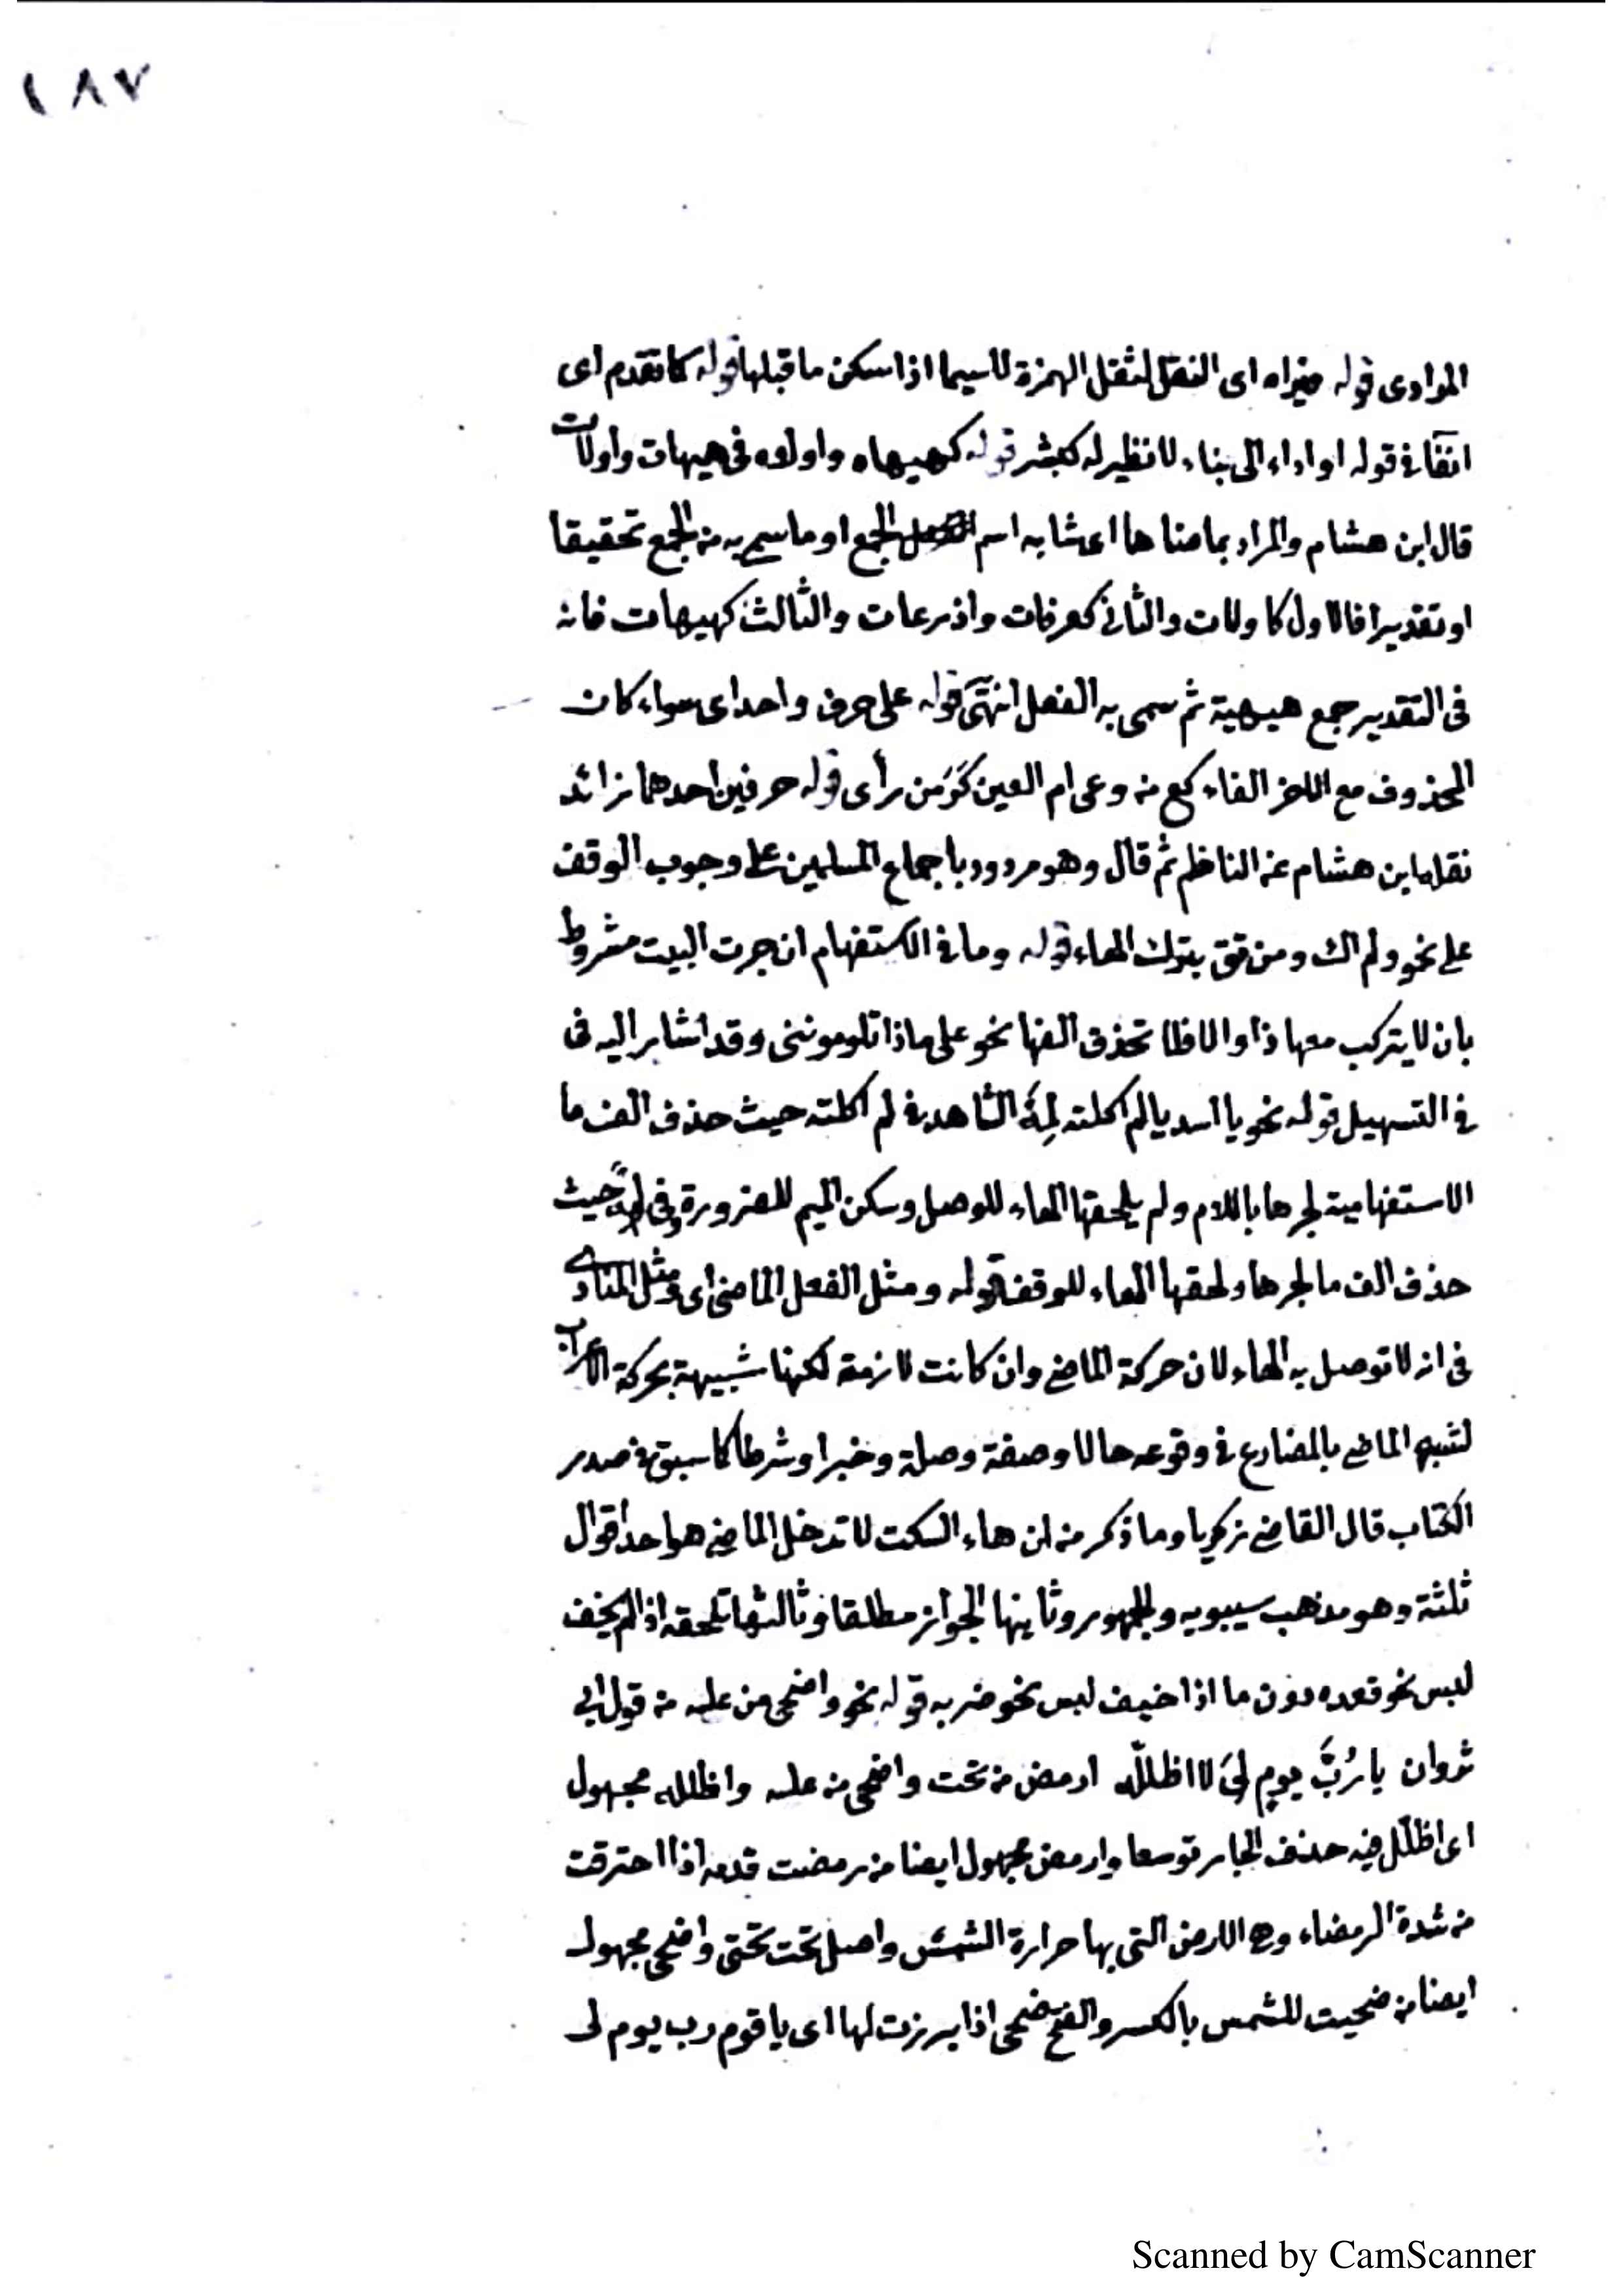 ١٨٧
المرادى قوله ميزاه اى النقل لثقل الهمزة لاسيما اذا سكن ما قبلها قوله كما تقدم اى
انفا فى قوله او اداء الى بناء لا نظير له كبشر قوله كهيهاه واولاه فى هيهات واولات
قال ابن هشام والمراد بما ضاهاها اعنى شابه اسم الجمع او ما سمى به من الجمع تحقيقا
او تقديرا فالاول كاولات والثانى كعرفات واذرعات والثالث كهيهات فانه
فى التقدير جمع هيهية ثم سمى به الفعل انتهى قوله على حرف واحد اى سواء كان
المحذوف مع اللام الفاء كع من وعى ام العين كرَ من رأى قوله حرفين احدهما زائد
نقلها ابن هشام عن الناظم ثم قال وهو مردود باجماع المسلمين على وجوب الوقف
على نحو ولم اك ومن تق بترك الهاء قوله وما فى الاستفهام ان جرت البيت مشروط
بان لا يتركب معها ذا والا فلا تحذف الفها نحو على ماذا تلوموننى وقد اشار اليه فى
فى التسهيل قوله نحو يا اسديا لم اكلته لِمَهْ الشاهد فى لم اكلته حيث حذف الف ما
الاستفهامية لجرها باللام ولم يلحقها الهاء للوصل وسكن الميم للضرورة وفى لمه حيث
حذف الف ما لجرها ولحقها الهاء للوقف قوله ومثل الفعل الماضى اى ومثل المنادى
فى انه لا توصل به الهاء لان حركة الماضى وان كانت لازمة لكنها شبيهة بحركة الاعراب
لشبه الماضى بالمضارع فى وقوعه حالا وصفة وصلة وخبرا وشرطا كما سبق فى صدر
الكتاب قال القاضى زكريا وما ذكر من ان هاء السكت لا تدخل الماضى هو احد اقوال
ثلثة وهو مذهب سيبويه والجمهور وثانيها الجواز مطلقا وثالثها تلحقه اذا لم يخف
لبس نحو قعده دون ما اذا خيف لبس نحو ضربه قوله نحو واضحى من عله من قول ابى
ثروان يا رُبَّ يومٍ لِىَ لا اظللّه ارمض من تحت واضحى من عله واظلله مجهول
اى اظلّل فيه حذف الجار توسعا وارمض مجهول ايضا من رمضت قدمه اذا احترقت
من شدة الرمضاء وهى الارض التى بها حرارة الشمس واصل تحت تحتى واضحى مجهول
ايضا من ضحيت للشمس بالكسر والفتح ضحى اذا برزت لها اى يا قوم رب يوم لى
Scanned by CamScanner